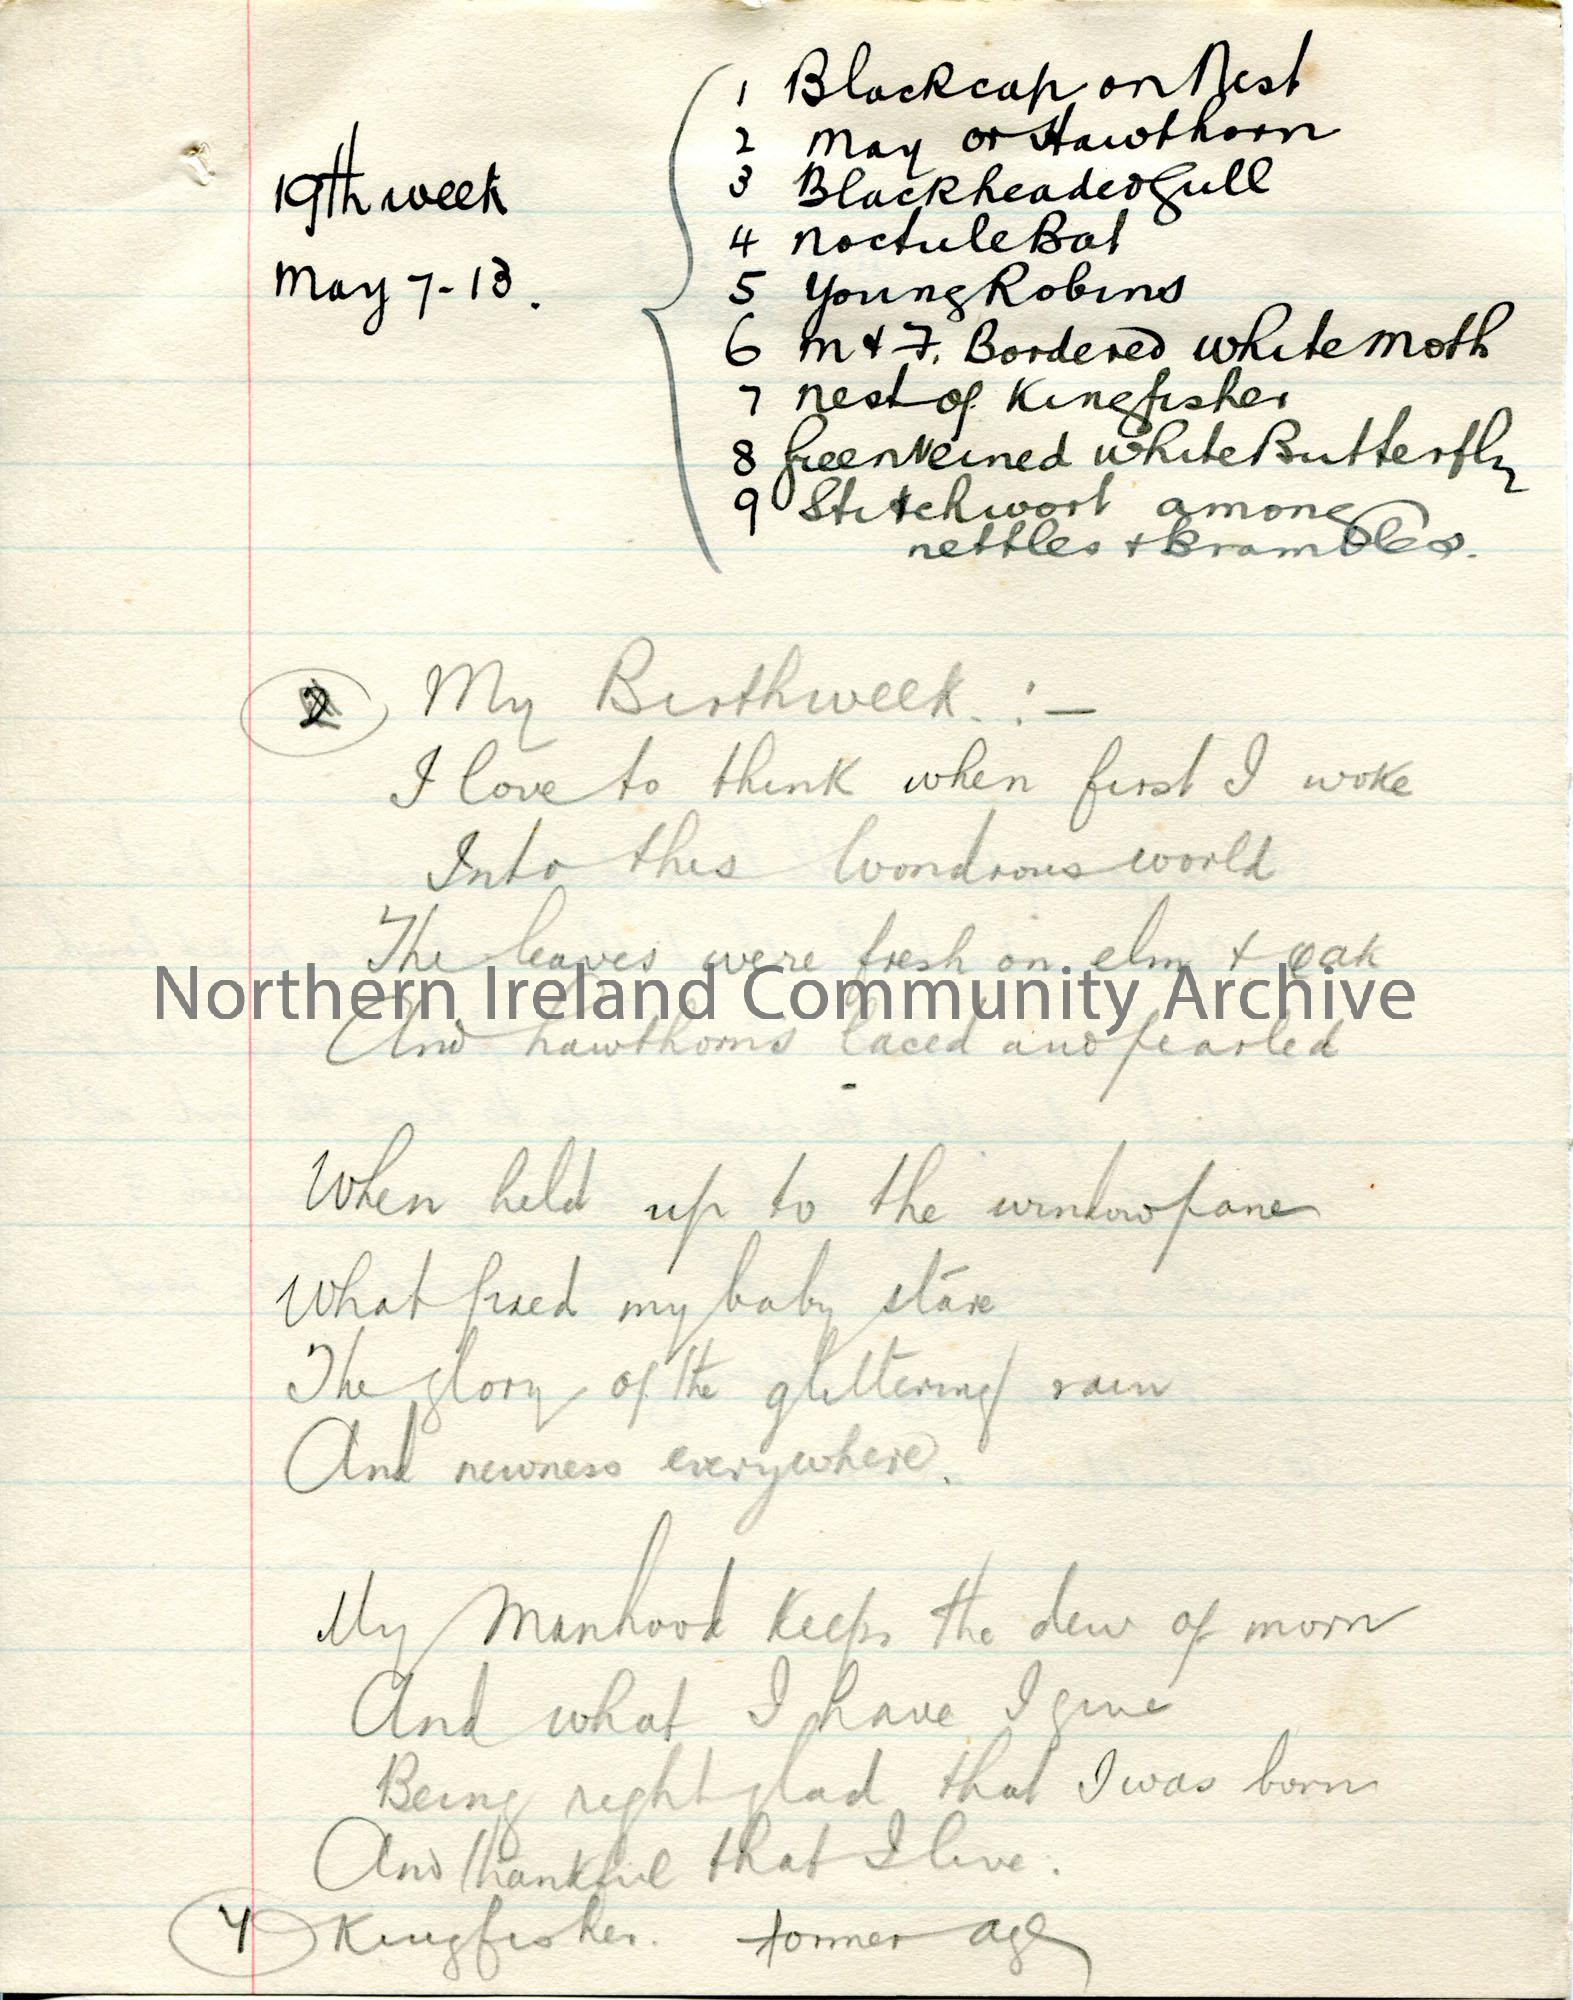 19th week
May 7-13.
1 Blackcap on Nest
2 May or Hawthorn
3 Blackheaded Gull
4 Noctule Bat
5 Young Robins
6 M & F. Bordered White Moth
7 Nest of Kingfisher
8 Green Veined White Butterfly
9 Stitchwort among
nettles & Brambles.
2 My Birthweek. :-
I love to think when first I woke
Into this wondrous world
The leaves were fresh on elm & oak
And hawthorns laced and pearled
When held up to the windowpane
What fixed my baby stare
The glory of the glittering rain
And newness everywhere.
My Manhood keeps the dew of morn
And what I have I give
Being right glad that I was born
And thankful that I live.
Kingfisher. former age
Northern Ireland Community Archive